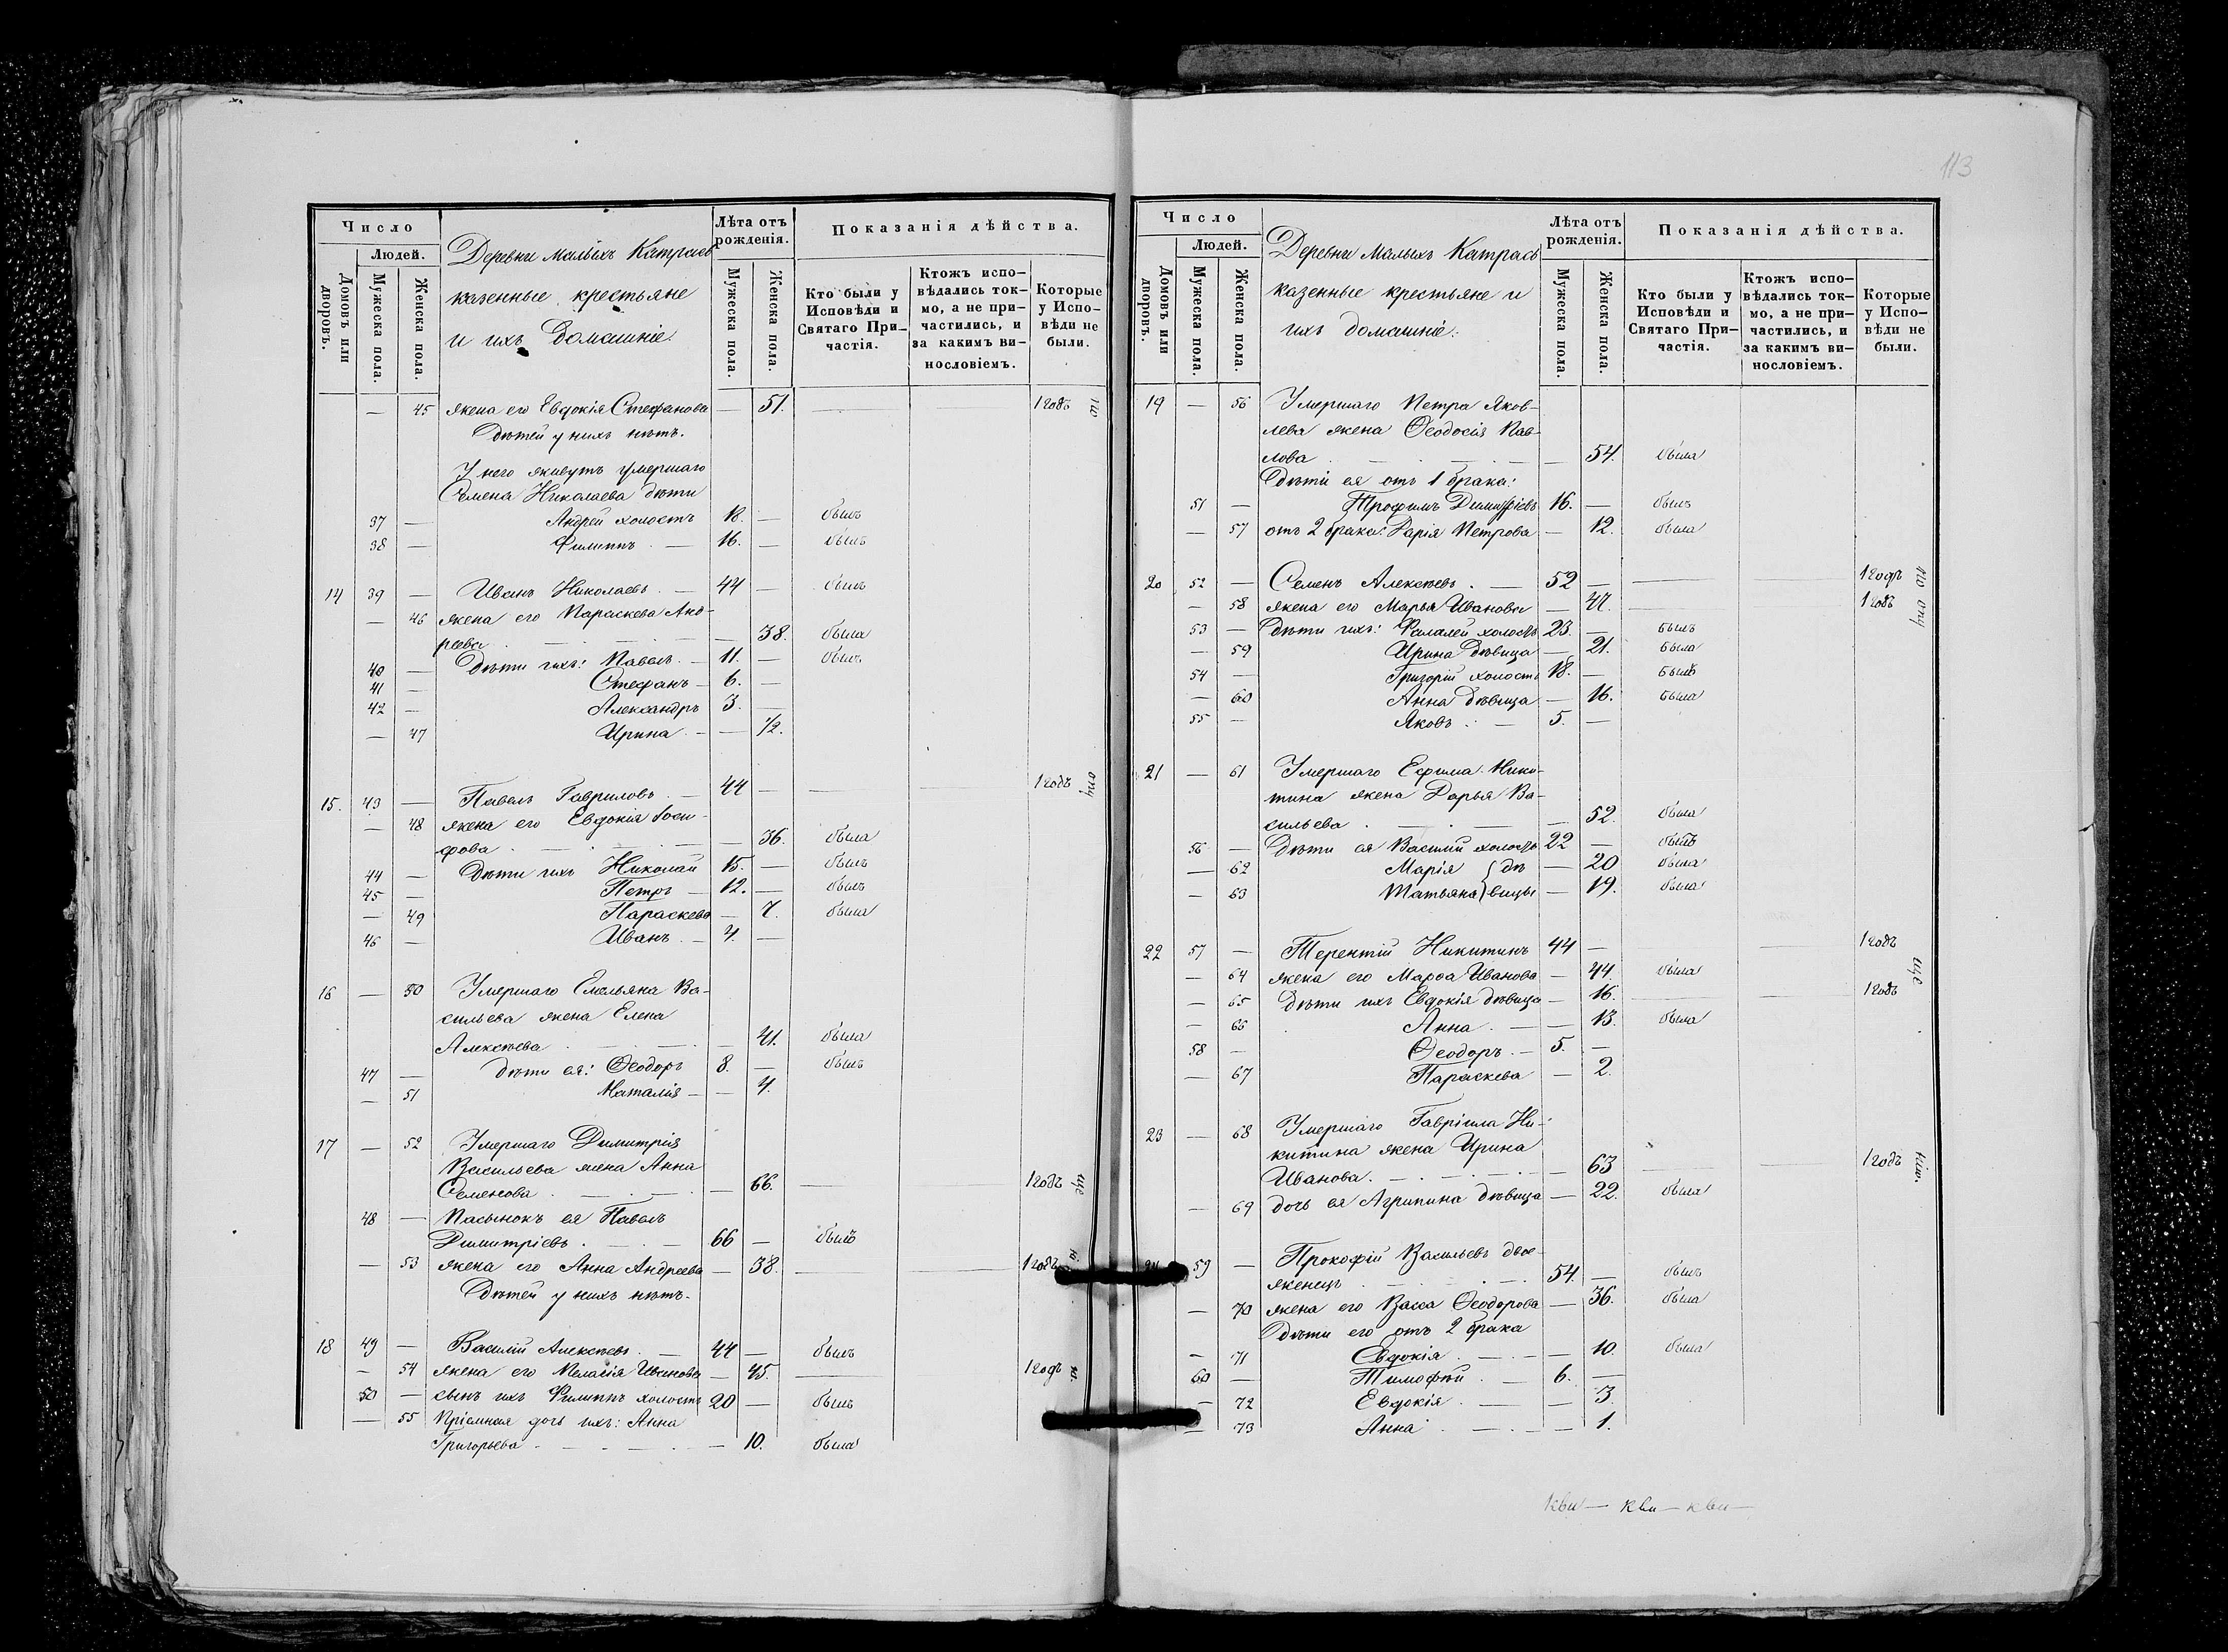 Число
Людей.
Домовъ или дворовъ.
Мужеска пола.
Женска пола.
Деревни Малыхъ Катрась
казенные крестьяне
и ихъ домашніе.
Лѣта отъ рожденія.
Мужеска пола.
Женска пола.
Показанія дѣйства.
Кто были у Исповѣди и Святаго При-частія.
Ктожъ испо-вѣдались ток-мо, а не при-частились, и за какимъ ви-нословіемъ.
Которые у Испо-вѣди не были.
— 45 жена его Евдокія Стефанова — 51. — 1 годъ
Дѣтей у нихъ нѣтъ.
У него живутъ умершаго
Семена Николаева дѣти
37 — Андрей холостъ 18. — былъ
38 — Филиппъ . — 16. — былъ
14 39 — Иванъ Николаевъ . — 44 — былъ
— 46 жена его Параскева Анд-
реева . — . — — 38. была
40 — Дѣти ихъ: Павелъ . — 11. — былъ
41 — Стефанъ — 6. —
42 — Александръ 3. —
— 47 Ирина . — — 1/2.
15. 43 — Павелъ Гавриловъ . — 44 — — 1 годъ
— 48 жена его Евдокія Іоси-
фова . — . — 36. была
44 — Дѣти ихъ Николай 15. — былъ
45 — Петръ — 12. — былъ
— 49 Параскева — 7. была
46 — Иванъ . — 4. —
16 — 50 Умершаго Емельяна Ва-
сильева жена Елена
Алексѣева . — . — — 41. была
47 — Дѣти ея: Ѳеодоръ 8. — былъ
— 51 Наталія — — 4.
17 — 52 Умершаго Димитрія
Васильева жена Анна
Семенова . — . — 66. — 1 годъ
48 — Пасынокъ ея Павелъ
Димитріевъ . — . — 66 — былъ
— 53 жена его Анна Андреева — 38. — 1 годъ
Дѣтей у нихъ нѣтъ.
18 49 — Василій Алексѣевъ . — 44 — былъ
— 54 жена его Меланія Иванова — 45. — 1 годъ
50 — сынъ ихъ Филиппъ холостъ 20 — былъ
— 55 Пріемная дочь ихъ: Анна
Григорьева . — . — — 10. была
113
Число
Людей.
Домовъ или дворовъ.
Мужеска пола.
Женска пола.
Деревни Малыхъ Катрась
казенные крестьяне и
ихъ домашніе:
Лѣта отъ рожденія.
Мужеска пола.
Женска пола.
Показанія дѣйства.
Кто были у Исповѣди и Святаго При-частія.
Ктожъ испо-вѣдались ток-мо, а не при-частились, и за какимъ ви-нословіемъ.
Которые у Испо-вѣди не были.
19 — 56 Умершаго Петра Яков-
лева жена Ѳеодосія Пав-
лова . — . — — 54. была
Дѣти ея отъ 1 брака:
51 — Трофимъ Димитріевъ 16. — былъ
— 57 отъ 2 брака: Дарія Петрова — 12. была
20 52 — Семенъ Алексѣевъ . — 52 — — 1 годъ
— 58 жена его Марья Иванова — 47. — 1 годъ
53 — Дѣти ихъ: Фалалей холостъ 23. — былъ
— 59 Ирина дѣвица — 21. была
54 — Григорій холостъ 18. — былъ
— 60 Анна дѣвица — 16. была
55 — Яковъ . — 5. —
21 — 61 Умершаго Ефима Ники-
тина жена Дарья Ва-
сильева . — . — — 52. была
56 — Дѣти ея Василій холостъ 22 — былъ
— 62 Марія } дѣ — 20 была
— 63 Татьяна } вицы — 19. была
22 57 — Терентій Никитинъ 44 — — 1 годъ
— 64 жена его Марѳа Иванова — 44. была
— 65 Дѣти ихъ Евдокія дѣвица — 16. — 1 годъ
— 66 Анна . — — 13. была
58 — Ѳеодоръ . — 5. —
— 67 Параскева — 2.
23 — 68 Умершаго Гавріила Ни-
китина жена Ирина
Иванова . — . — — 63 — 1 годъ
— 69 дочь ея Агрипина дѣвица — 22. была
59 — Прокофій Васильевъ двое-
женецъ . — . — 54. — былъ
— 70 жена его Васса Ѳеодорова — 36. была
Дѣти его отъ 2 брака
— 71 Евдокія . — — 10. была
60 — Тимофей . — 6. —
— 72 Евдокія . — — 3.
— 73 Анна . — — 1.
кви — кви — кви —